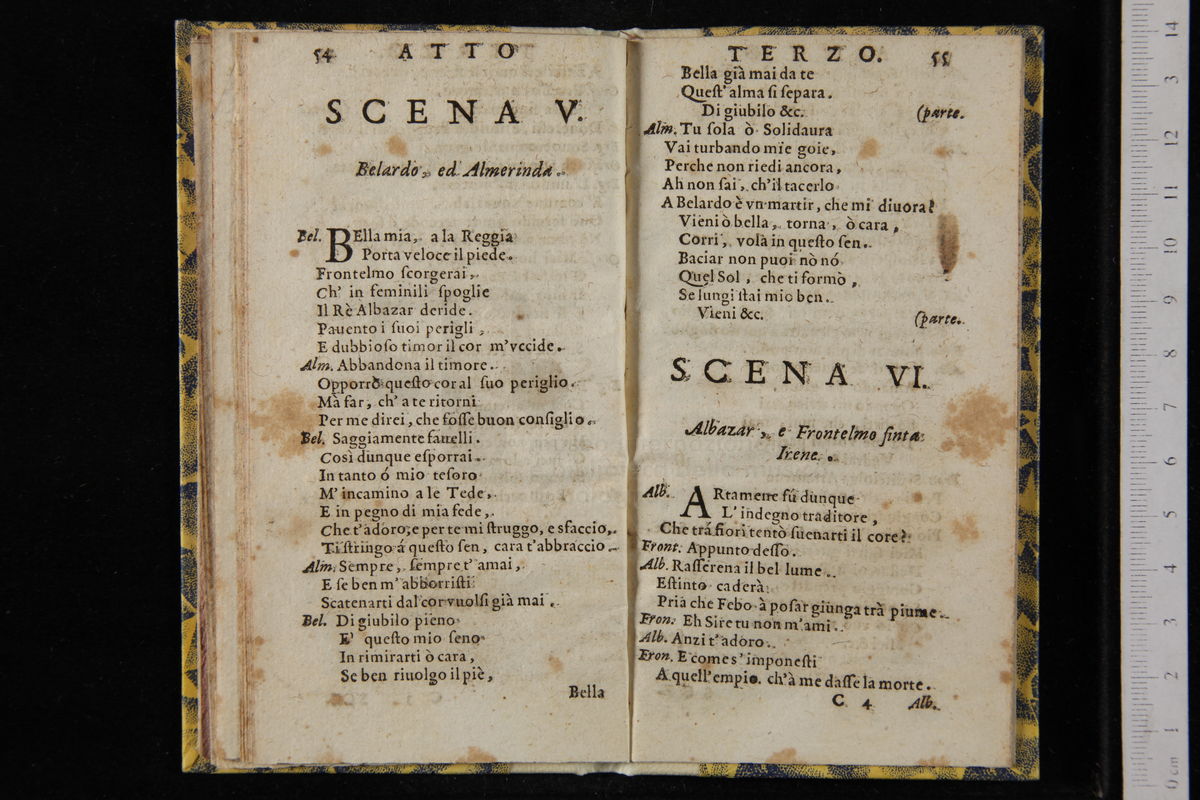 54 ATTO
SCENA V.
Belardo, ed Almerinda.
Bel. BElla mia, a la Reggia
Porta veloce il piede.
Frontelmo ſcorgerai,
Ch' in feminili ſpoglie
Il Rè Albazar deride.
Pauento i ſuoi perigli,
E dubbioſo timor il cor m'vccide.
Alm. Abbandona il timore.
Opporrò queſto cor al ſuo periglio.
Mà far, ch' a te ritorni
Per me direi, che foſſe buon conſiglio.
Bel. Saggiamente fauelli.
Così dunque eſporrai.
In tanto ó mio teſoro
M' incamino a le Tede,
E in pegno di mia fede,
Che t'adoro, e per te mi ſtruggo, e sfaccio,
Ti ſtringo á queſto ſen, cara t'abbraccio.
Alm. Sempre, ſempre t' amai,
E ſe ben m' abborriſti
Scatenarti dal cor vuolſi già mai.
Bel. Di giubilo pieno
E' queſto mio ſeno
In rimirarti ò cara,
Se ben riuolgo il piè,
Bella
TERZO. 55
Bella già mai da te
Queſt' alma ſi ſepara.
Di giubilo &c. (parte.
Alm. Tu ſola ò Solidaura
Vai turbando mie goie,
Perche non riedi ancora,
Ah non ſai, ch'il tacerlo
A Belardo è vn martir, che mi diuora?
Vieni ò bella, torna, ò cara,
Corri, vola in queſto ſen.
Baciar non puoi nò nó
Quel Sol, che ti formò,
Se lungi ſtai mio ben.
Vieni &c. (parte.
SCENA VI.
Albazar, e Frontelmo finta
Irene.
Alb. ARtamene fù dunque
L' indegno traditore,
Che trá fiori tentò ſuenarti il core?
Front. Appunto deſſo.
Alb. Raſſerena il bel lume.
Eſtinto caderà
Pria che Febo à poſar giunga trà piume.
Fron. Eh Sire tu non m'ami.
Alb. Anzi t'adoro.
Fron. E come s' imponeſti
A quell'empio. ch'à me daſſe la morte.
C 4 Alb.
14
3
12
11
10
9
8
7
6
5
4
3
2
1
0 cm